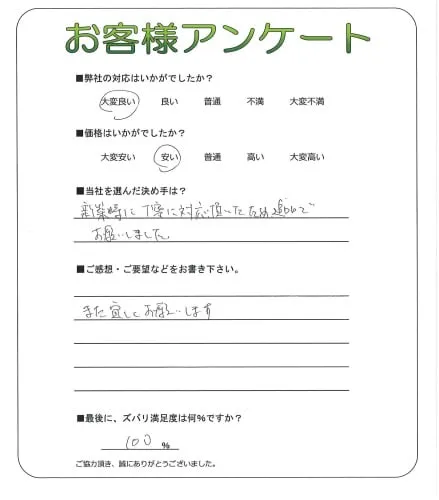 お客様アンケート
■弊社の対応はいかがでしたか?
大変良い 良い 普通 不満 大変不満
■価格はいかがでしたか?
大変安い 安い 普通 高い 大変高い
■当社を選んだ決め手は?
創業時に丁寧に対応頂いたため追加で
お願いしました
■ご感想・ご要望などをお書き下さい。
また宜しくお願いします
■最後に、ズバリ満足度は何%ですか?
100 %
ご協力頂き、誠にありがとうございました。